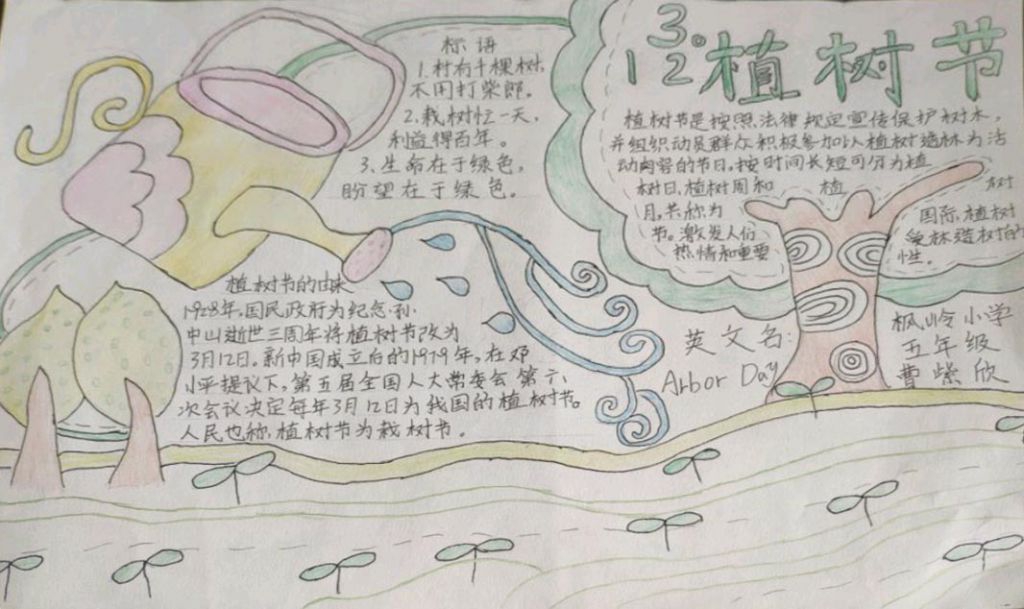 3.12 植树节
标语
1.村有千棵树,
不用打柴郎。
2.栽树忙一天,
利益得百年。
3.生命在于绿色,
盼望在于绿色。
植树节是按照法律规定宣传保护树木,
并组织动员群众积极参加以植树造林为活
动内容的节日,按时间长短可分为植
树日,植树周和 植 树
月,共称为 国际,植树
节。激发人们 爱林造树的
热情和重要 性。
植树节的由来
1928年,国民政府为纪念孙
中山逝世三周年将植树节改为
3月12日。新中国成立白的1979年,在邓
小平提议下,第五届全国人大常委会第六
次会议决定每年3月12日为我国的植树节。
人民也称,植树节为栽树节。
英文名:
Arbor Day
枫岭小学
五年级
曹紫欣